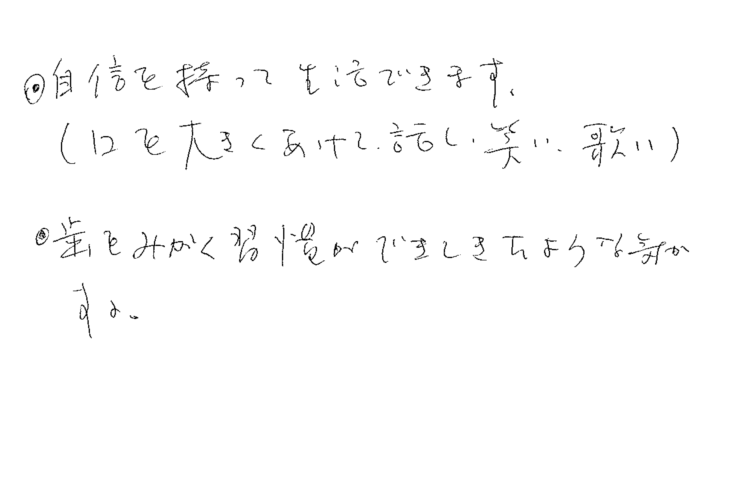 ◉自信を持って生活できます。
(口を大きくあけて、話し、笑い、歌い)
◉歯をみがく習慣ができてきたような気が
する。